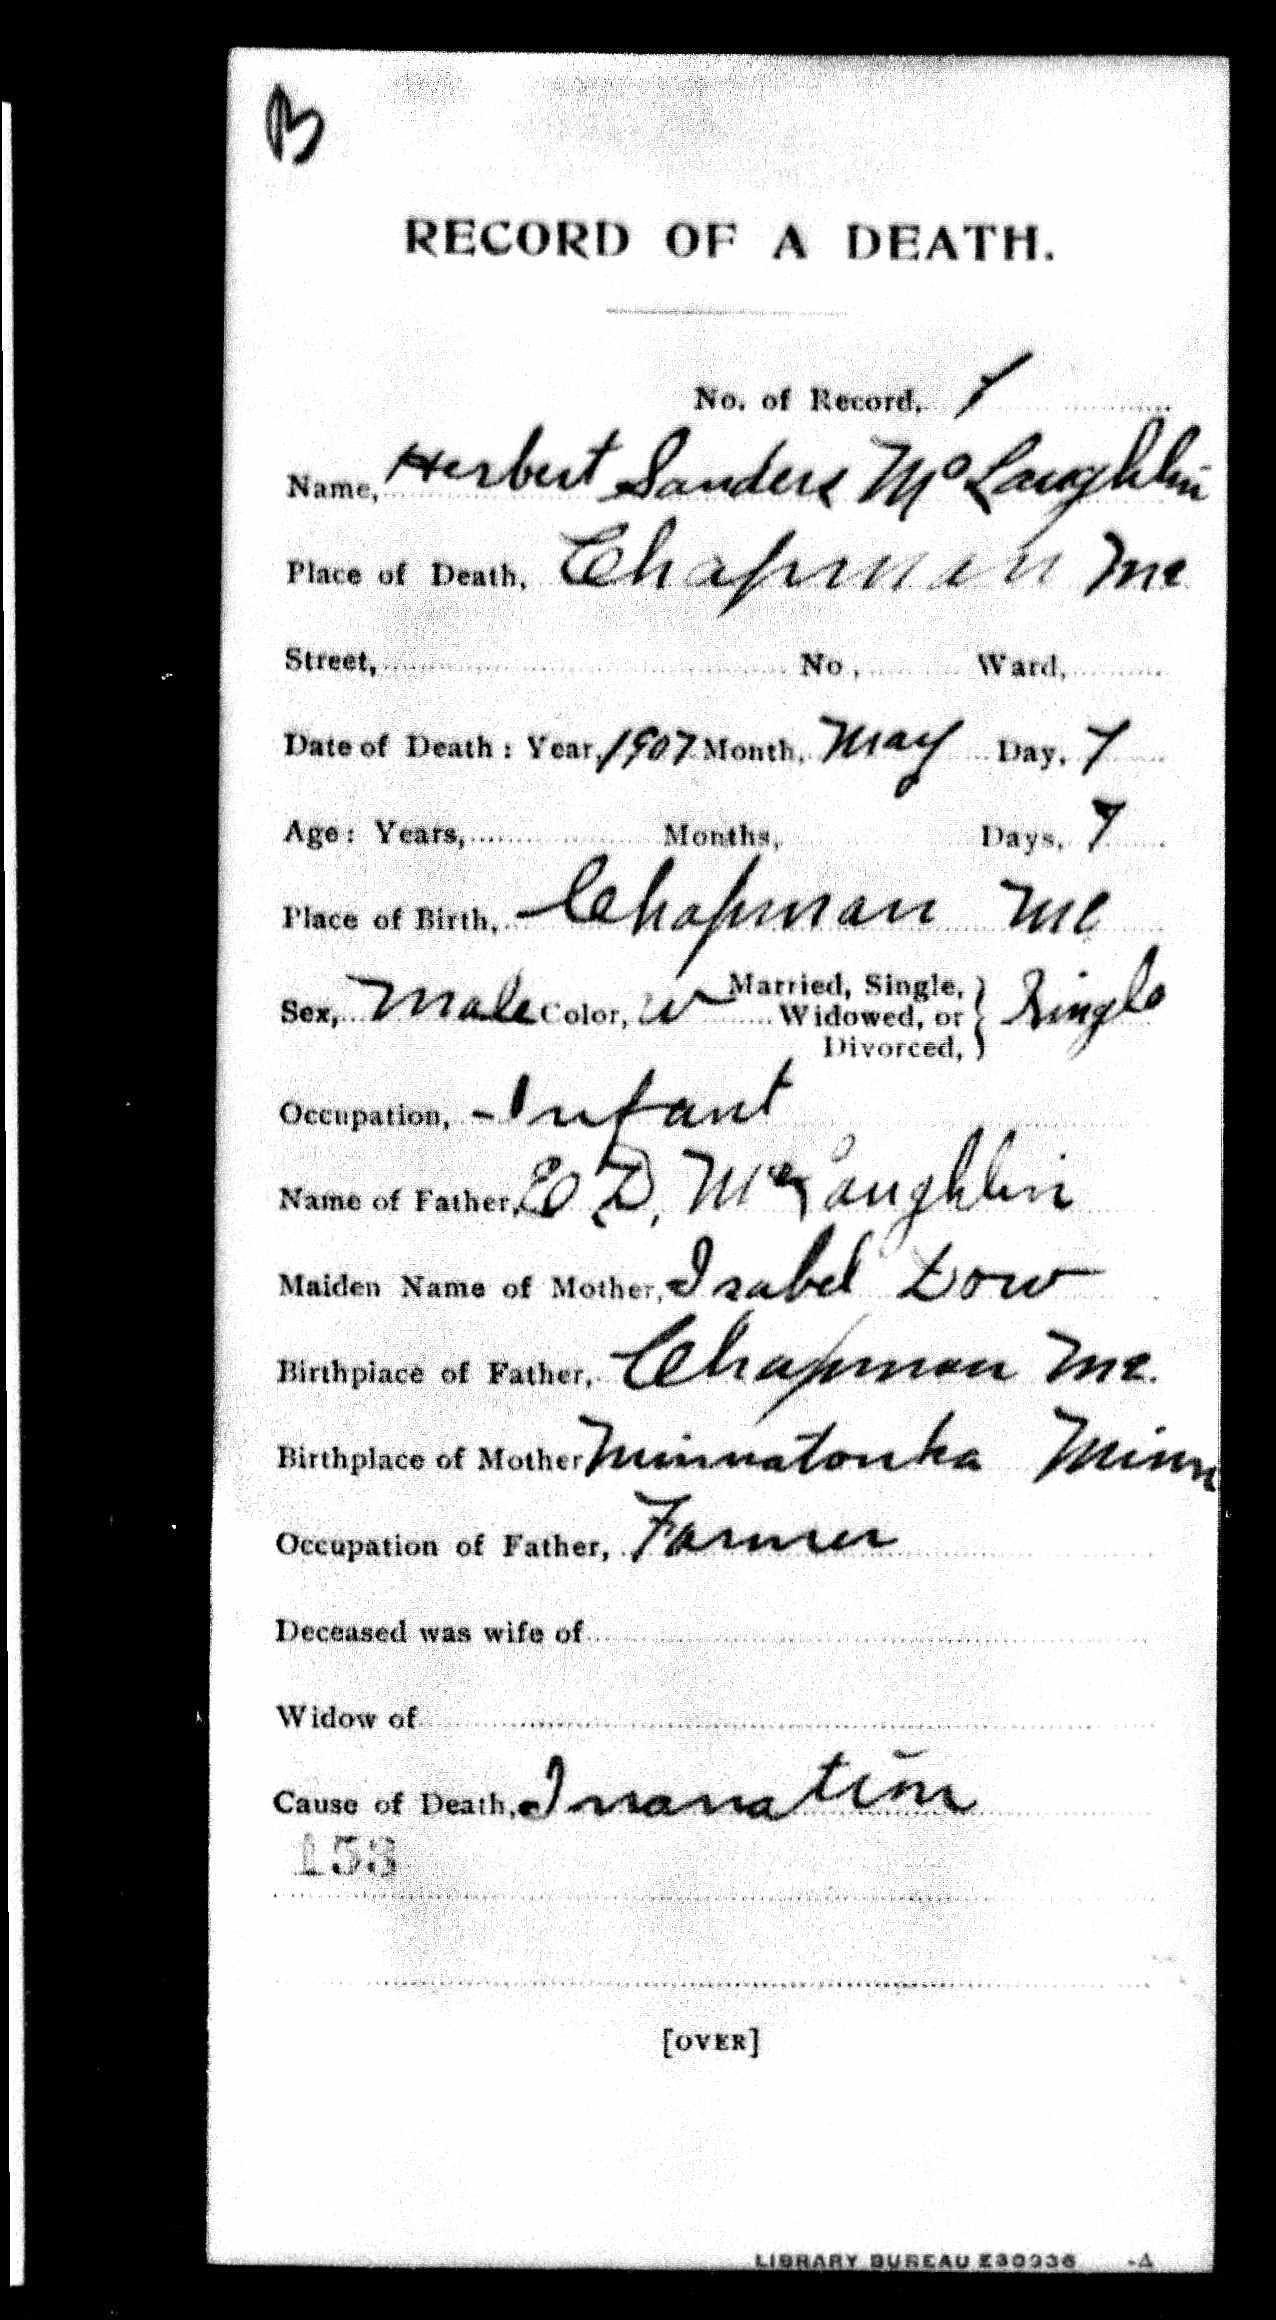 B
RECORD OF A DEATH.
No. of Record, 7
Name, Herbert Sanders McLaughlin
Place of Death, Chapman Me
Street, No, Ward,
Date of Death: Year, 1907 Month, May Day, 7
Age: Years, Months, Days, 7
Place of Birth, Chapman Me
Sex, Male Color, W Married, Single, Widowed, or Divorced, } Single
Occupation, Infant
Name of Father, E D, McLaughlin
Maiden Name of Mother, Isabel Dow
Birthplace of Father, Chapman Me.
Birthplace of Mother Minnatonka Minn
Occupation of Father, Farmer
Deceased was wife of
Widow of
Cause of Death, Inanation
153
[OVER]
LIBRARY BUREAU E30936